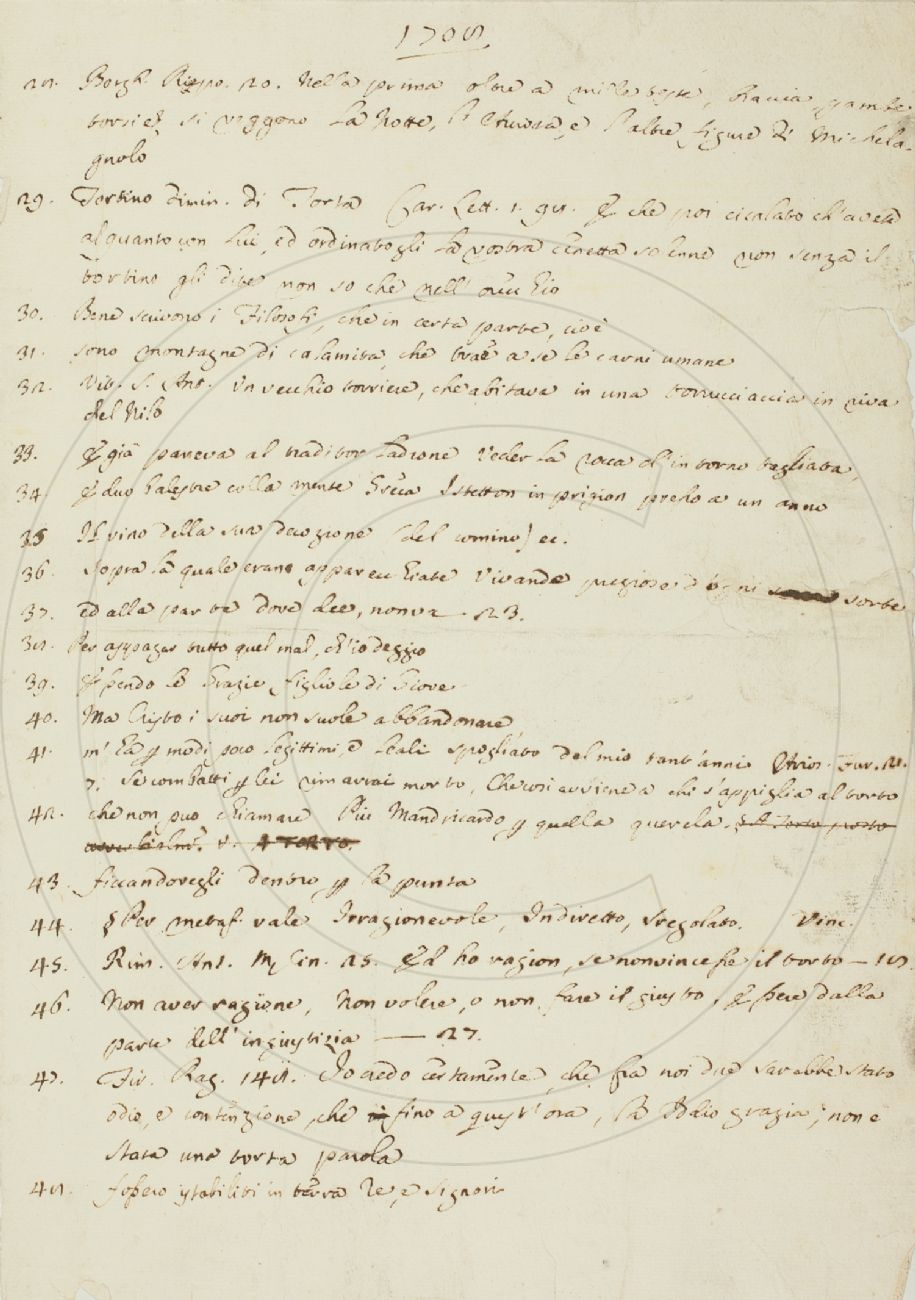 1708.
28. Borgh. Ripo. 20. Nella prima oltre a mille teste, braccia, gambe
torsi e si veggono la Notte, l'Aurora, e l'altre figure di Michela-
gnolo
29. Tortino dimin. di Torta Car. Lett. 1. 98. E che poi cicalato ch'avete
alquanto con lui, ed ordinatogli la vostra cenetta solenne non senza il
tortino gli dite non so che nell'orecchio
30. Bene scrivono i Filosofi, che in certa parte, cioè
31. sono montagne di calamita, che trae a sè le carni umane
32. Vit. S. Ant. Un vecchio torriere, che abitava in una torrucciaccia in riva
del Nilo
33. E già pareva al traditor ladrone Veder la rocca d'intorno tagliata,
34. E duo balestre colla mente bieca Istetton in prigion presso a un anno
35 Il vino della sua decozione (del comino) ec.
36. Sopra la quale erano apparecchiate vivande preziose d'ogni sorte
37. ed alla parte dove dee, non va. 23.
38. Per appagar tutto quel mal, ch'io deggio
39. Essendo le Grazie figliole di Giove
40. Ma Cristo i suoi non suole abbandonare
41. m'ha p modi poco legittimi, e leali spogliato del mio tant'anni Arios. Fur. 28.
7. Se combatti p lei rimarrai morto, Che così avviene a chi s'appiglia al torto
42. che non può chiamare Più Mandricardo p quella querela. § A Torto posto
avverbialmt. v. A TORTO
43. ficcandovegli dentro p la punta
44. § Per metaf. vale Irragionevole, Indiretto, Sregolato.
45. Rim. Ant. M. Cin. 25. Ed ho ragion, se non vincesse il torto — 18.
46. Non aver ragione, Non volere, o non fare il giusto, Essere dalla
parte dell'ingiustizia — 27.
47. Fir. Rag. 148. Io credo certamente, che fra noi due sarebbe stato
odio, e contenzione, che fino a quest'ora, la Iddio grazia, non è
stata una torta parola
48. fossero stabiliti in terra Re, e Signori